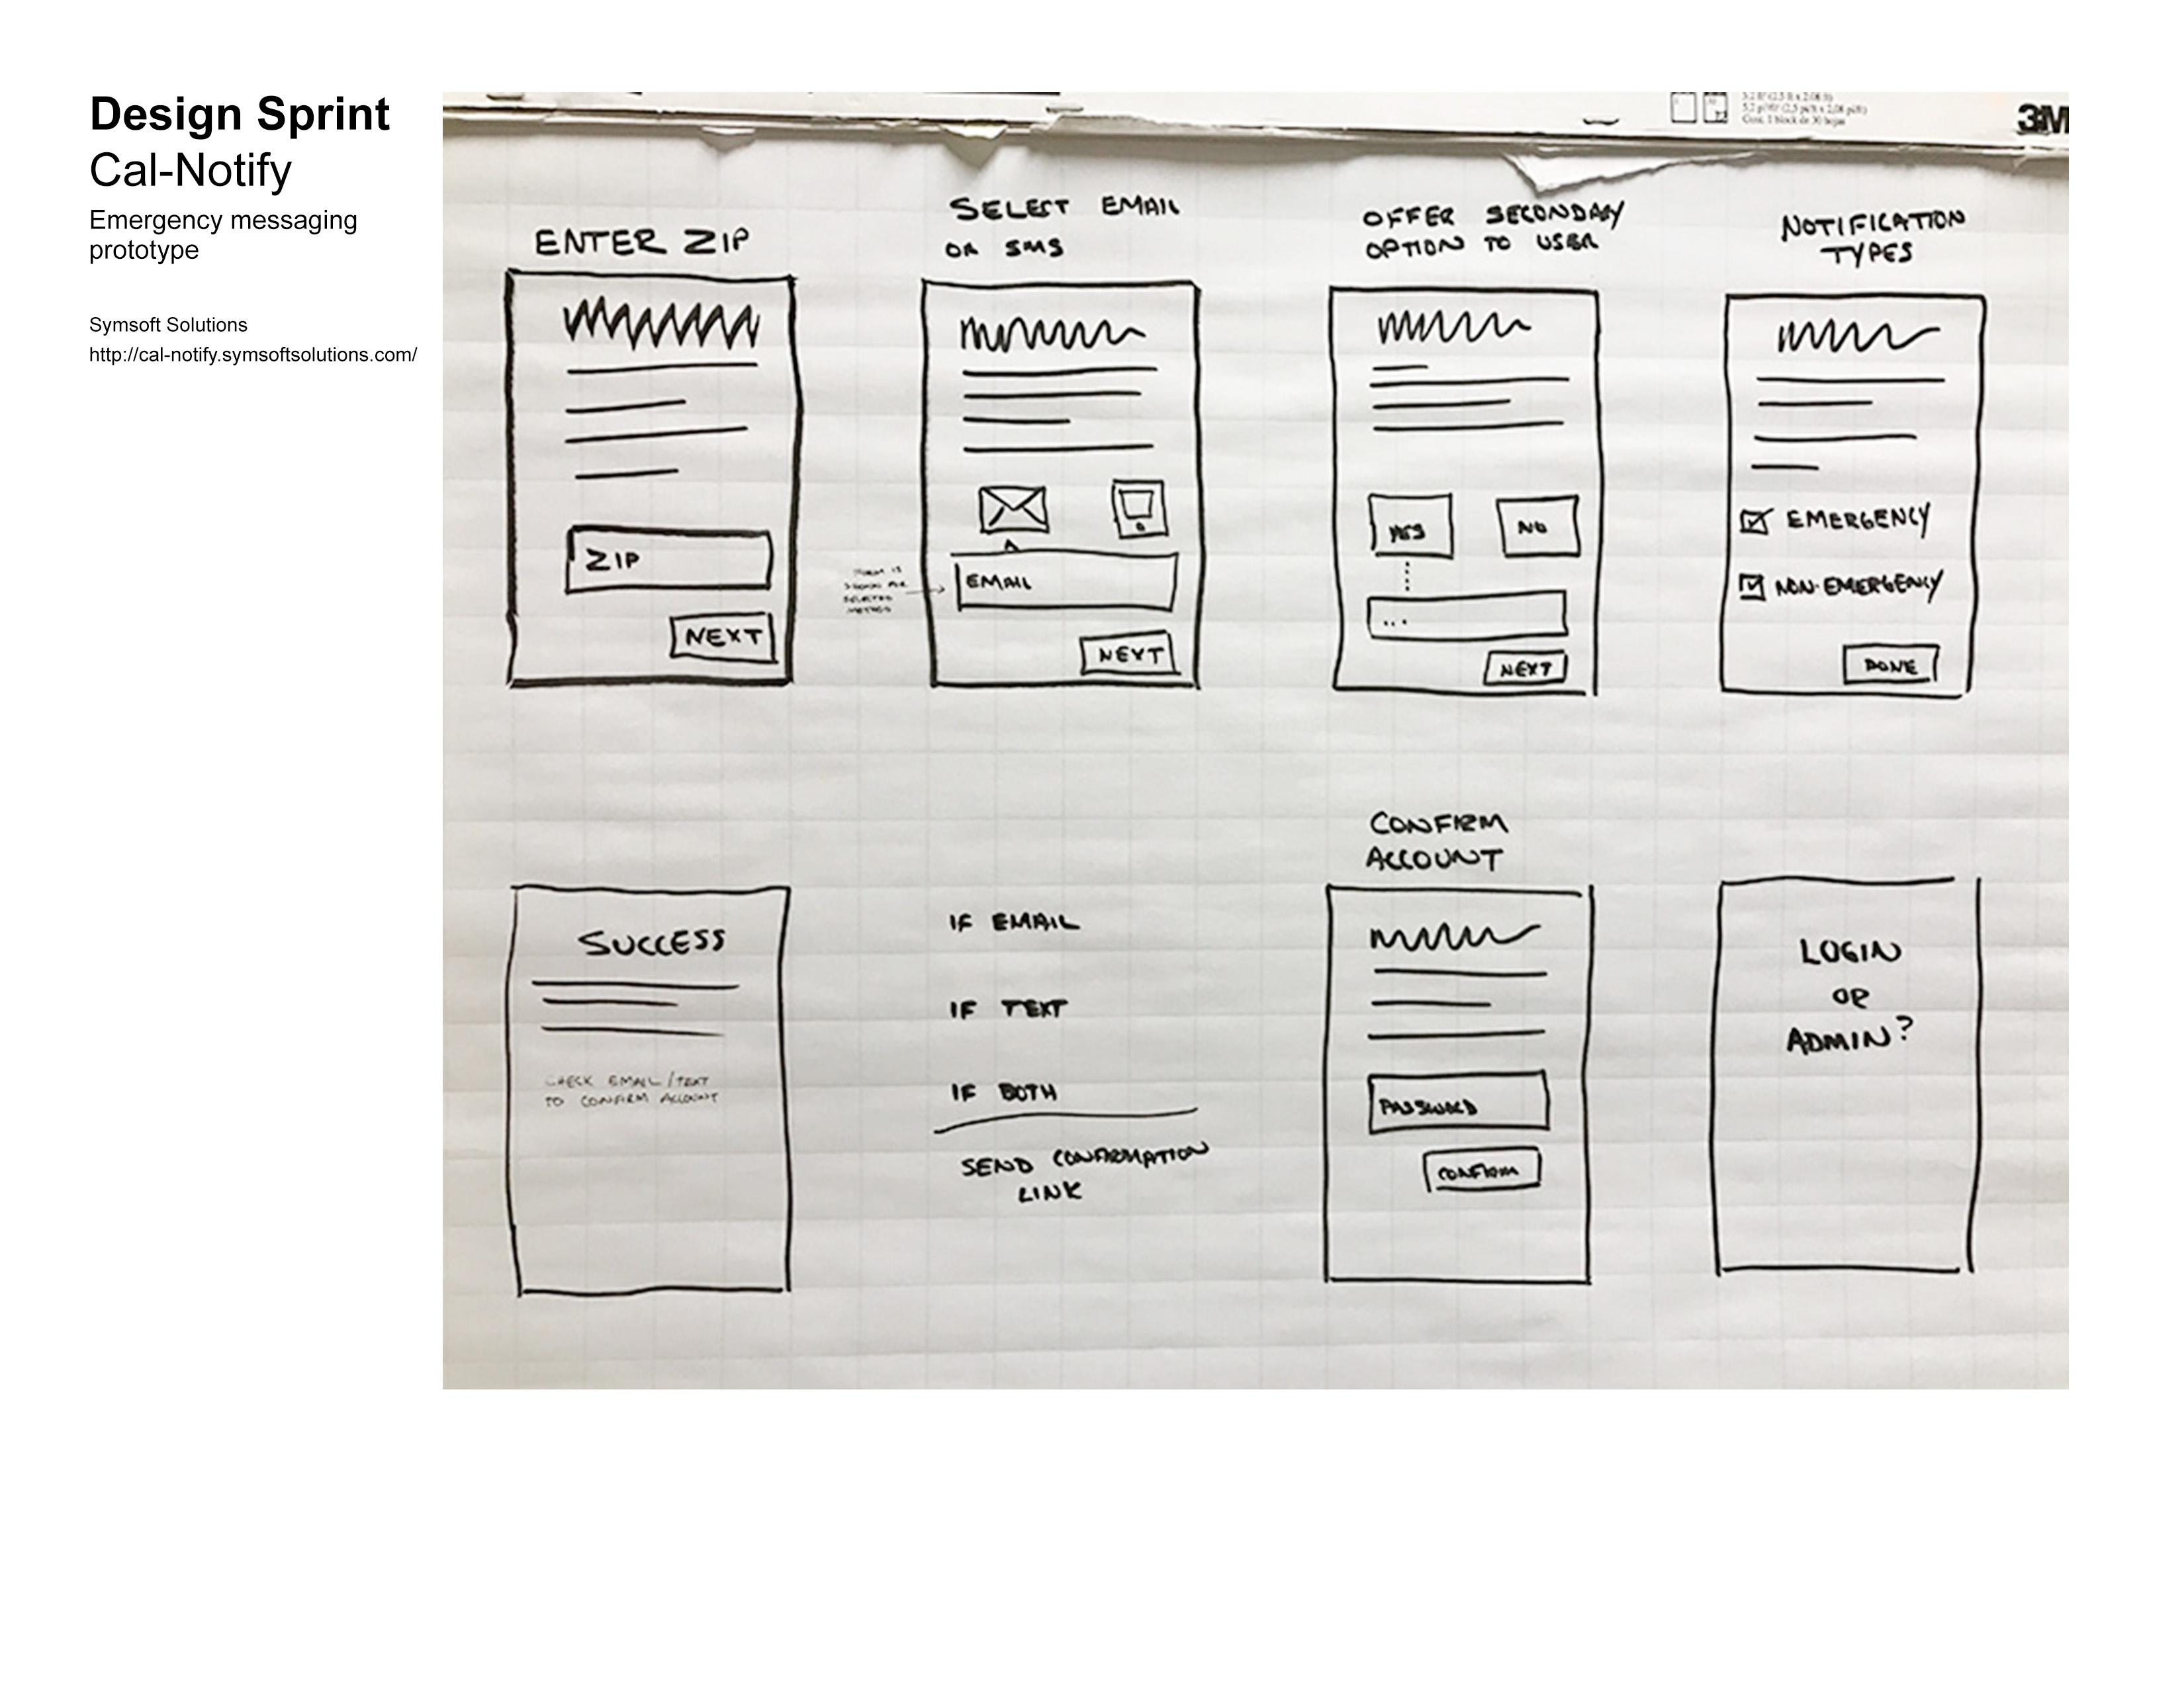 Design Sprint
Cal-Notify
Emergency messaging
prototype
Symsoft Solutions
http://cal-notify.symsoftsolutions.com/
3M
ENTER ZIP
ZIP
NEXT
SELECT EMAIL
OR SMS
FORM IS
SHOWN FOR
SELECTED
METHOD
EMAIL
NEXT
OFFER SECONDARY
OPTION TO USER
YES
NO
...
NEXT
NOTIFICATION
TYPES
EMERGENCY
NON-EMERGENCY
DONE
SUCCESS
CHECK EMAIL/TEXT
TO CONFIRM ACCOUNT
IF EMAIL
IF TEXT
IF BOTH
SEND CONFIRMATION
LINK
CONFIRM
ACCOUNT
PASSWORD
CONFIRM
LOGIN
OR
ADMIN?